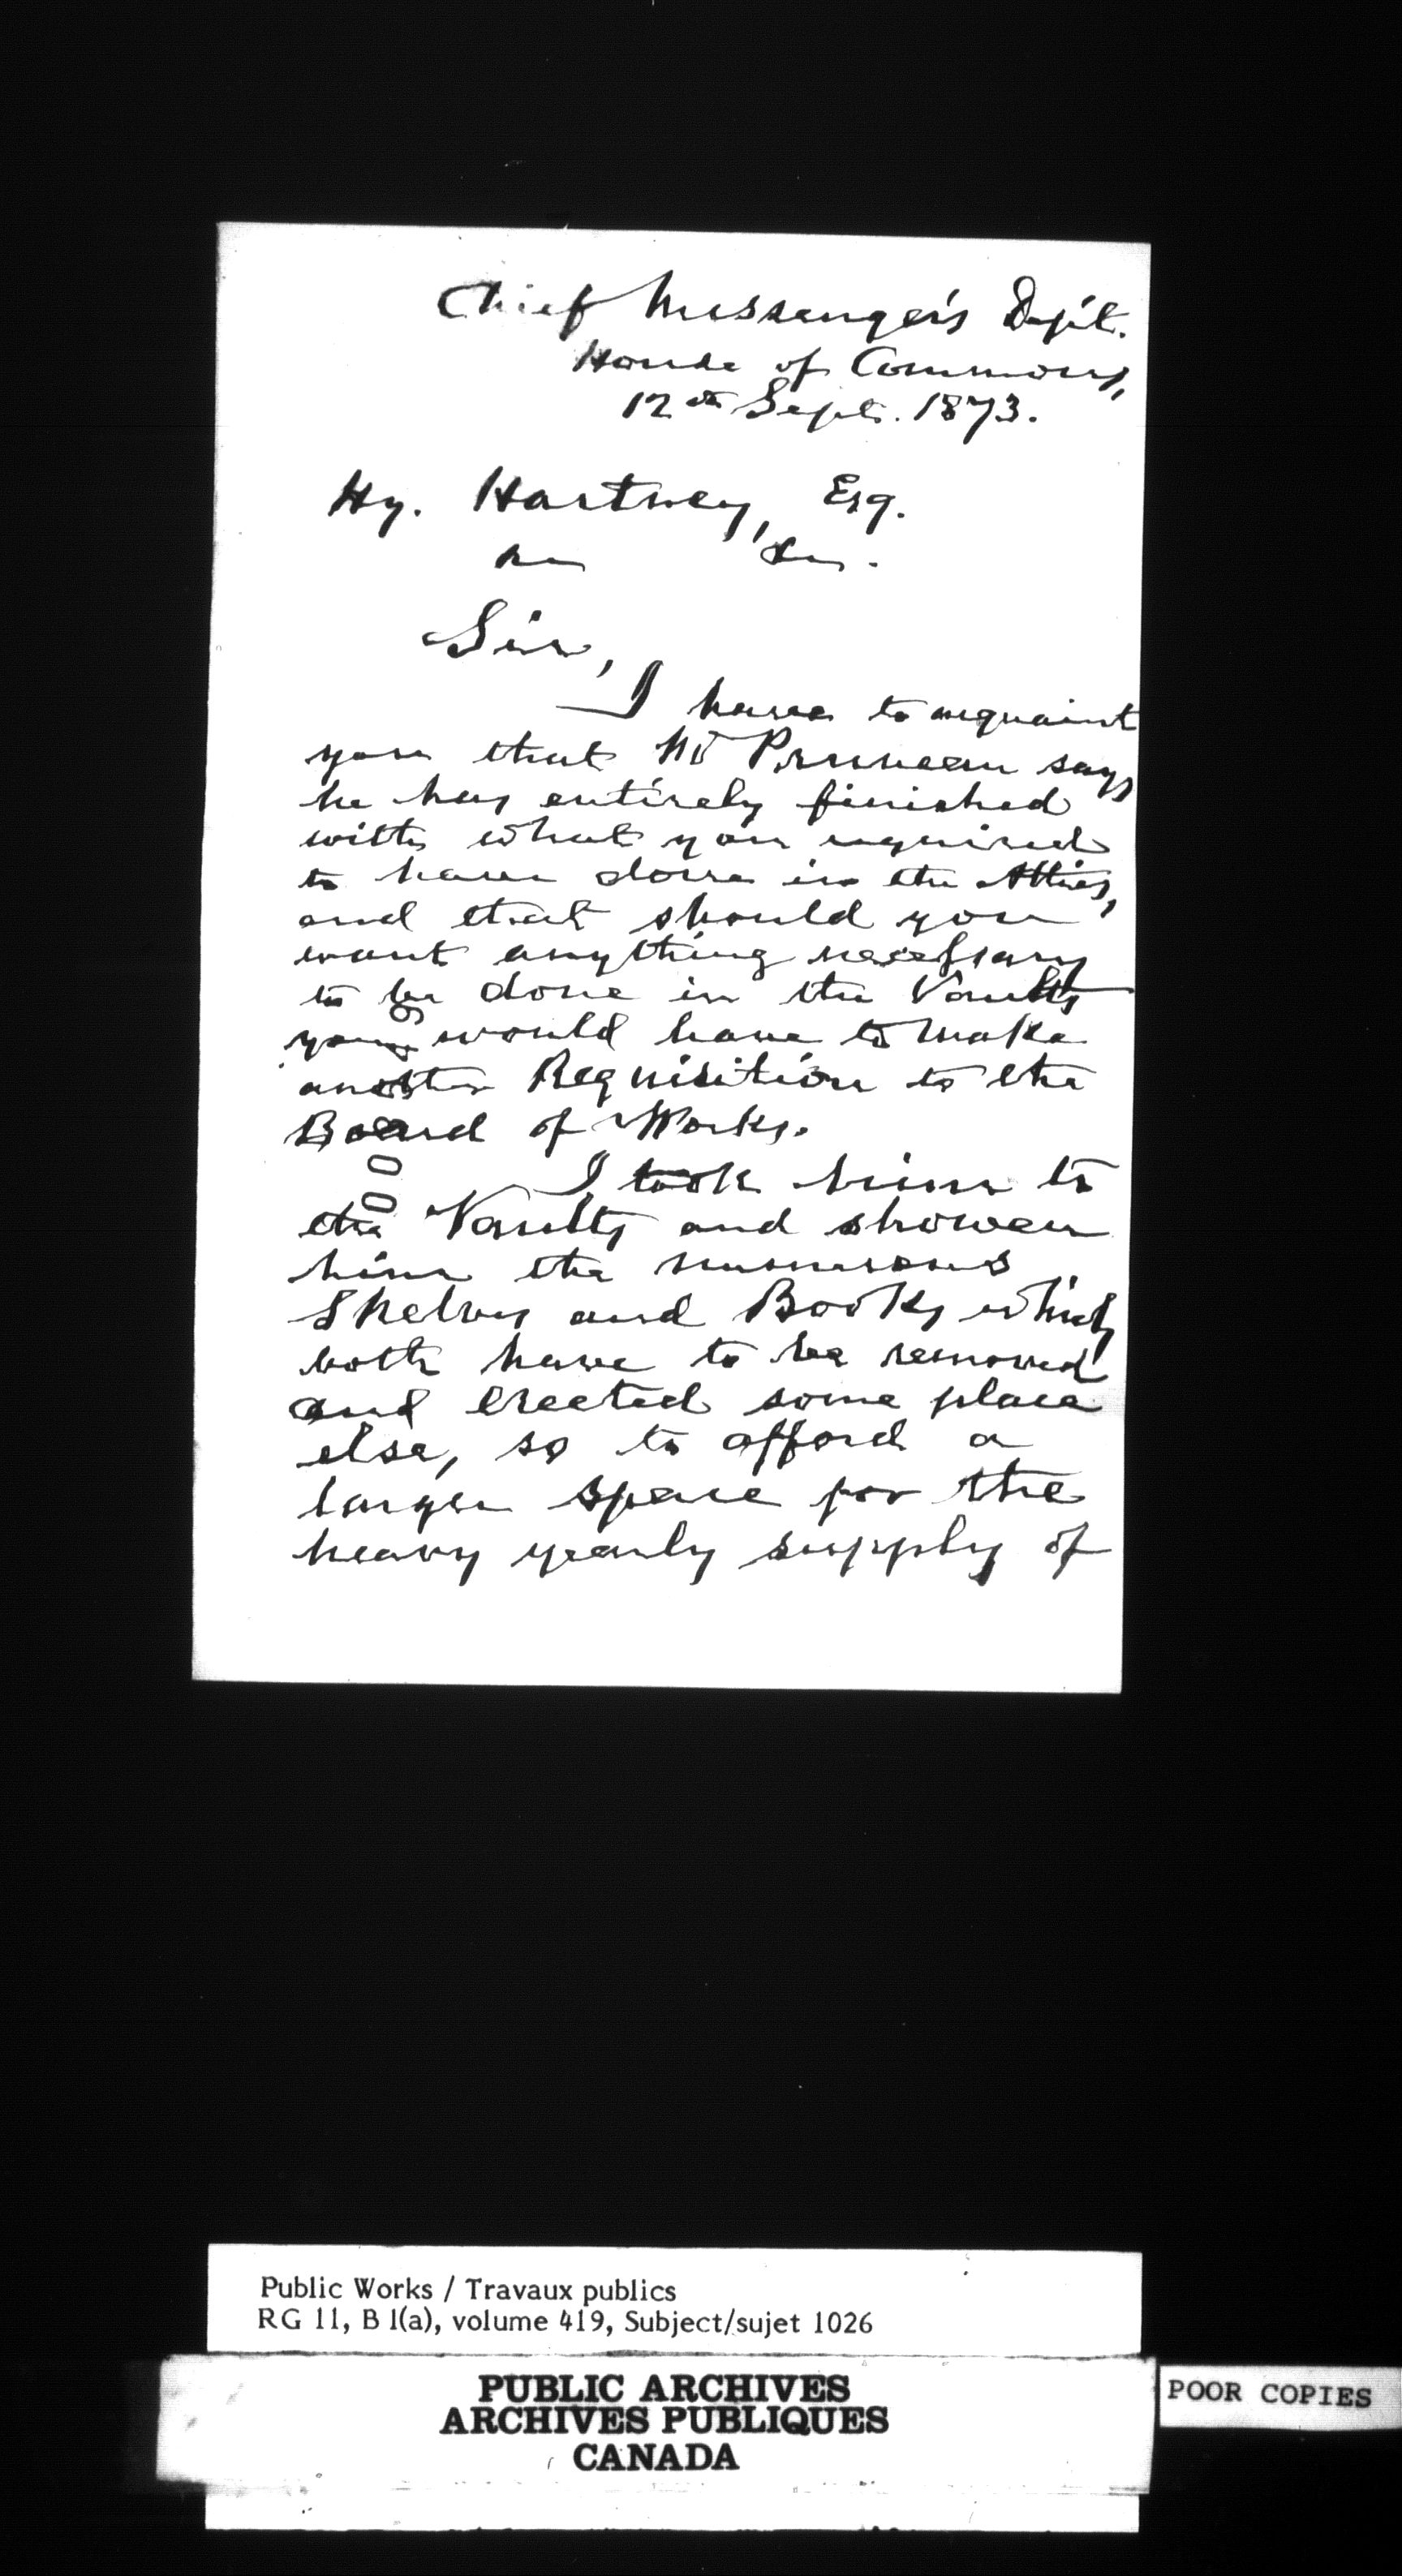 Chief Messenger's Dep't.
House of Commons,
12th Sept. 1873.
Hy. Hartney, Esq.
&c &c.
Sir,
I have to acquaint
you that Mr Pruneau says
he has entirely finished
with what you required
to have done in the Attics,
and that should you
want anything necessary
to be done in the Vaults
you would have to make
another Requisition to the
Board of Works.
I took him to
the Vaults and shewed
him the numerous
Shelves and Books which
both have to be removed
and erected some place
else, so to afford a
larger space for the
heavy yearly supply of
Public Works / Travaux publics
RG 11, B 1(a), volume 419, Subject/sujet 1026
PUBLIC ARCHIVES
ARCHIVES PUBLIQUES
CANADA
POOR COPIES